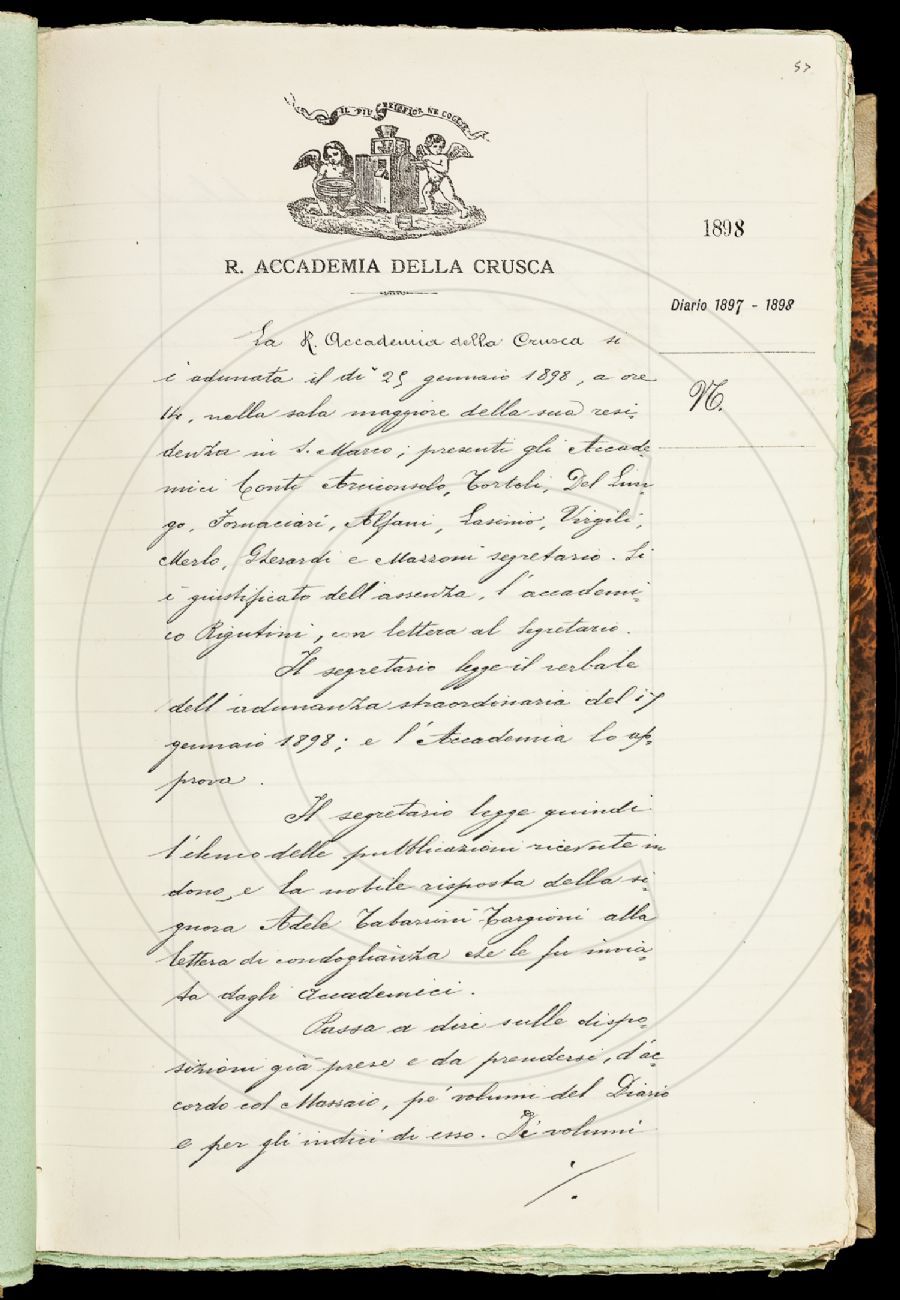 57
IL PIÙ BEL FIOR NE COGLIE
1898
R. ACCADEMIA DELLA CRUSCA
Diario 1897 - 1898
VI.
La R. Accademia della Crusca si
è adunata il dì 25 gennaio 1898, a ore
14, nella sala maggiore della sua resi-
denza in S. Marco; presenti gli Accade-
mici Conti Arciconsolo, Tortoli, Del Lun-
go, Fornaciari, Alfani, Lasinio, Virgili,
Merlo, Gherardi e Mazzoni segretario. Si
è giustificato dell'assenza, l'accademi-
co Rigutini, con lettera al Segretario.
Il segretario legge il verbale
dell'adunanza straordinaria del 17
gennaio 1898; e l'Accademia lo ap-
prova.
Il segretario legge quindi
l'elenco delle pubblicazioni ricevute in
dono, e la nobile risposta della si-
gnora Adele Tabarrini Targioni alla
lettera di condoglianza che le fu invia-
ta dagli Accademici.
Passa a dire sulle dispo-
sizioni già prese e da prendersi, d'ac-
cordo col Massaio, pe' volumi del Diario
e per gli indici di esso. Di volumi
./.